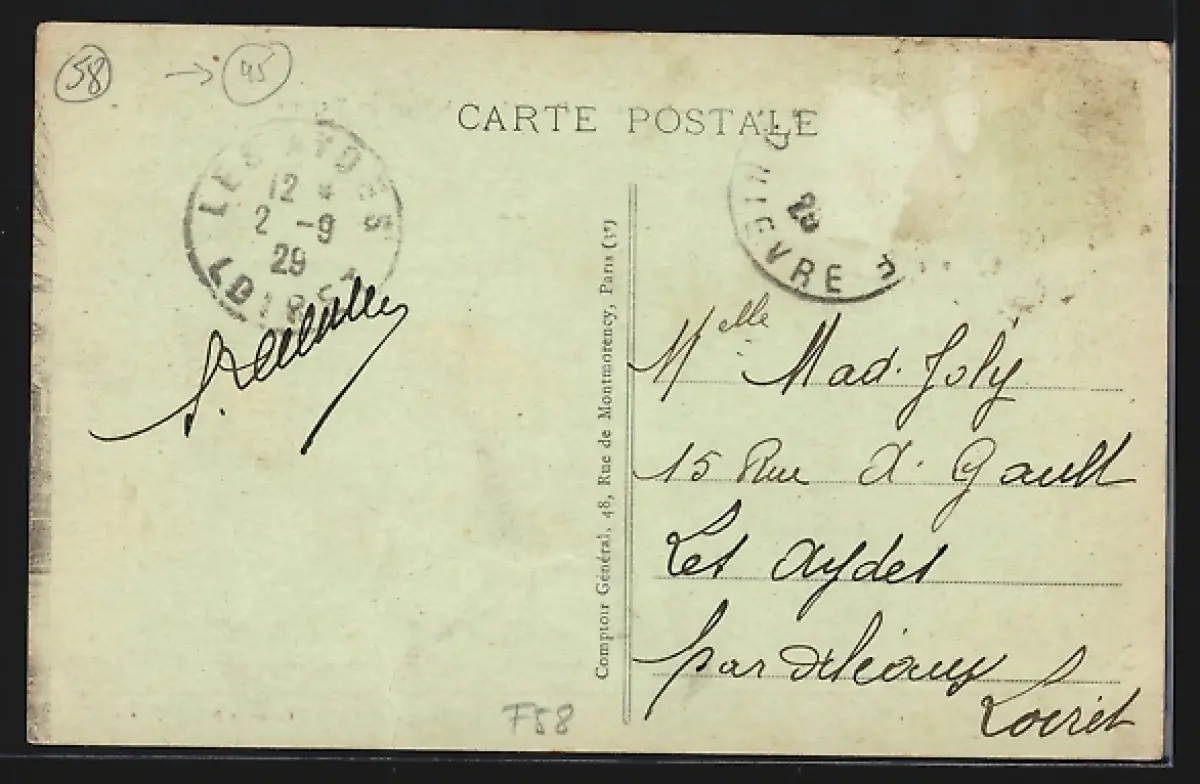 58 → 45
CARTE POSTALE
LES AYDES
12 *
2 -9
29
LOIRET
29
NIEVRE
Comptoir Général, 48, Rue de Montmorency, Paris (3e)
Melle Mad. Joly
15 Rue A. Gault
Les Aydes
par Orléans
Loiret
F58